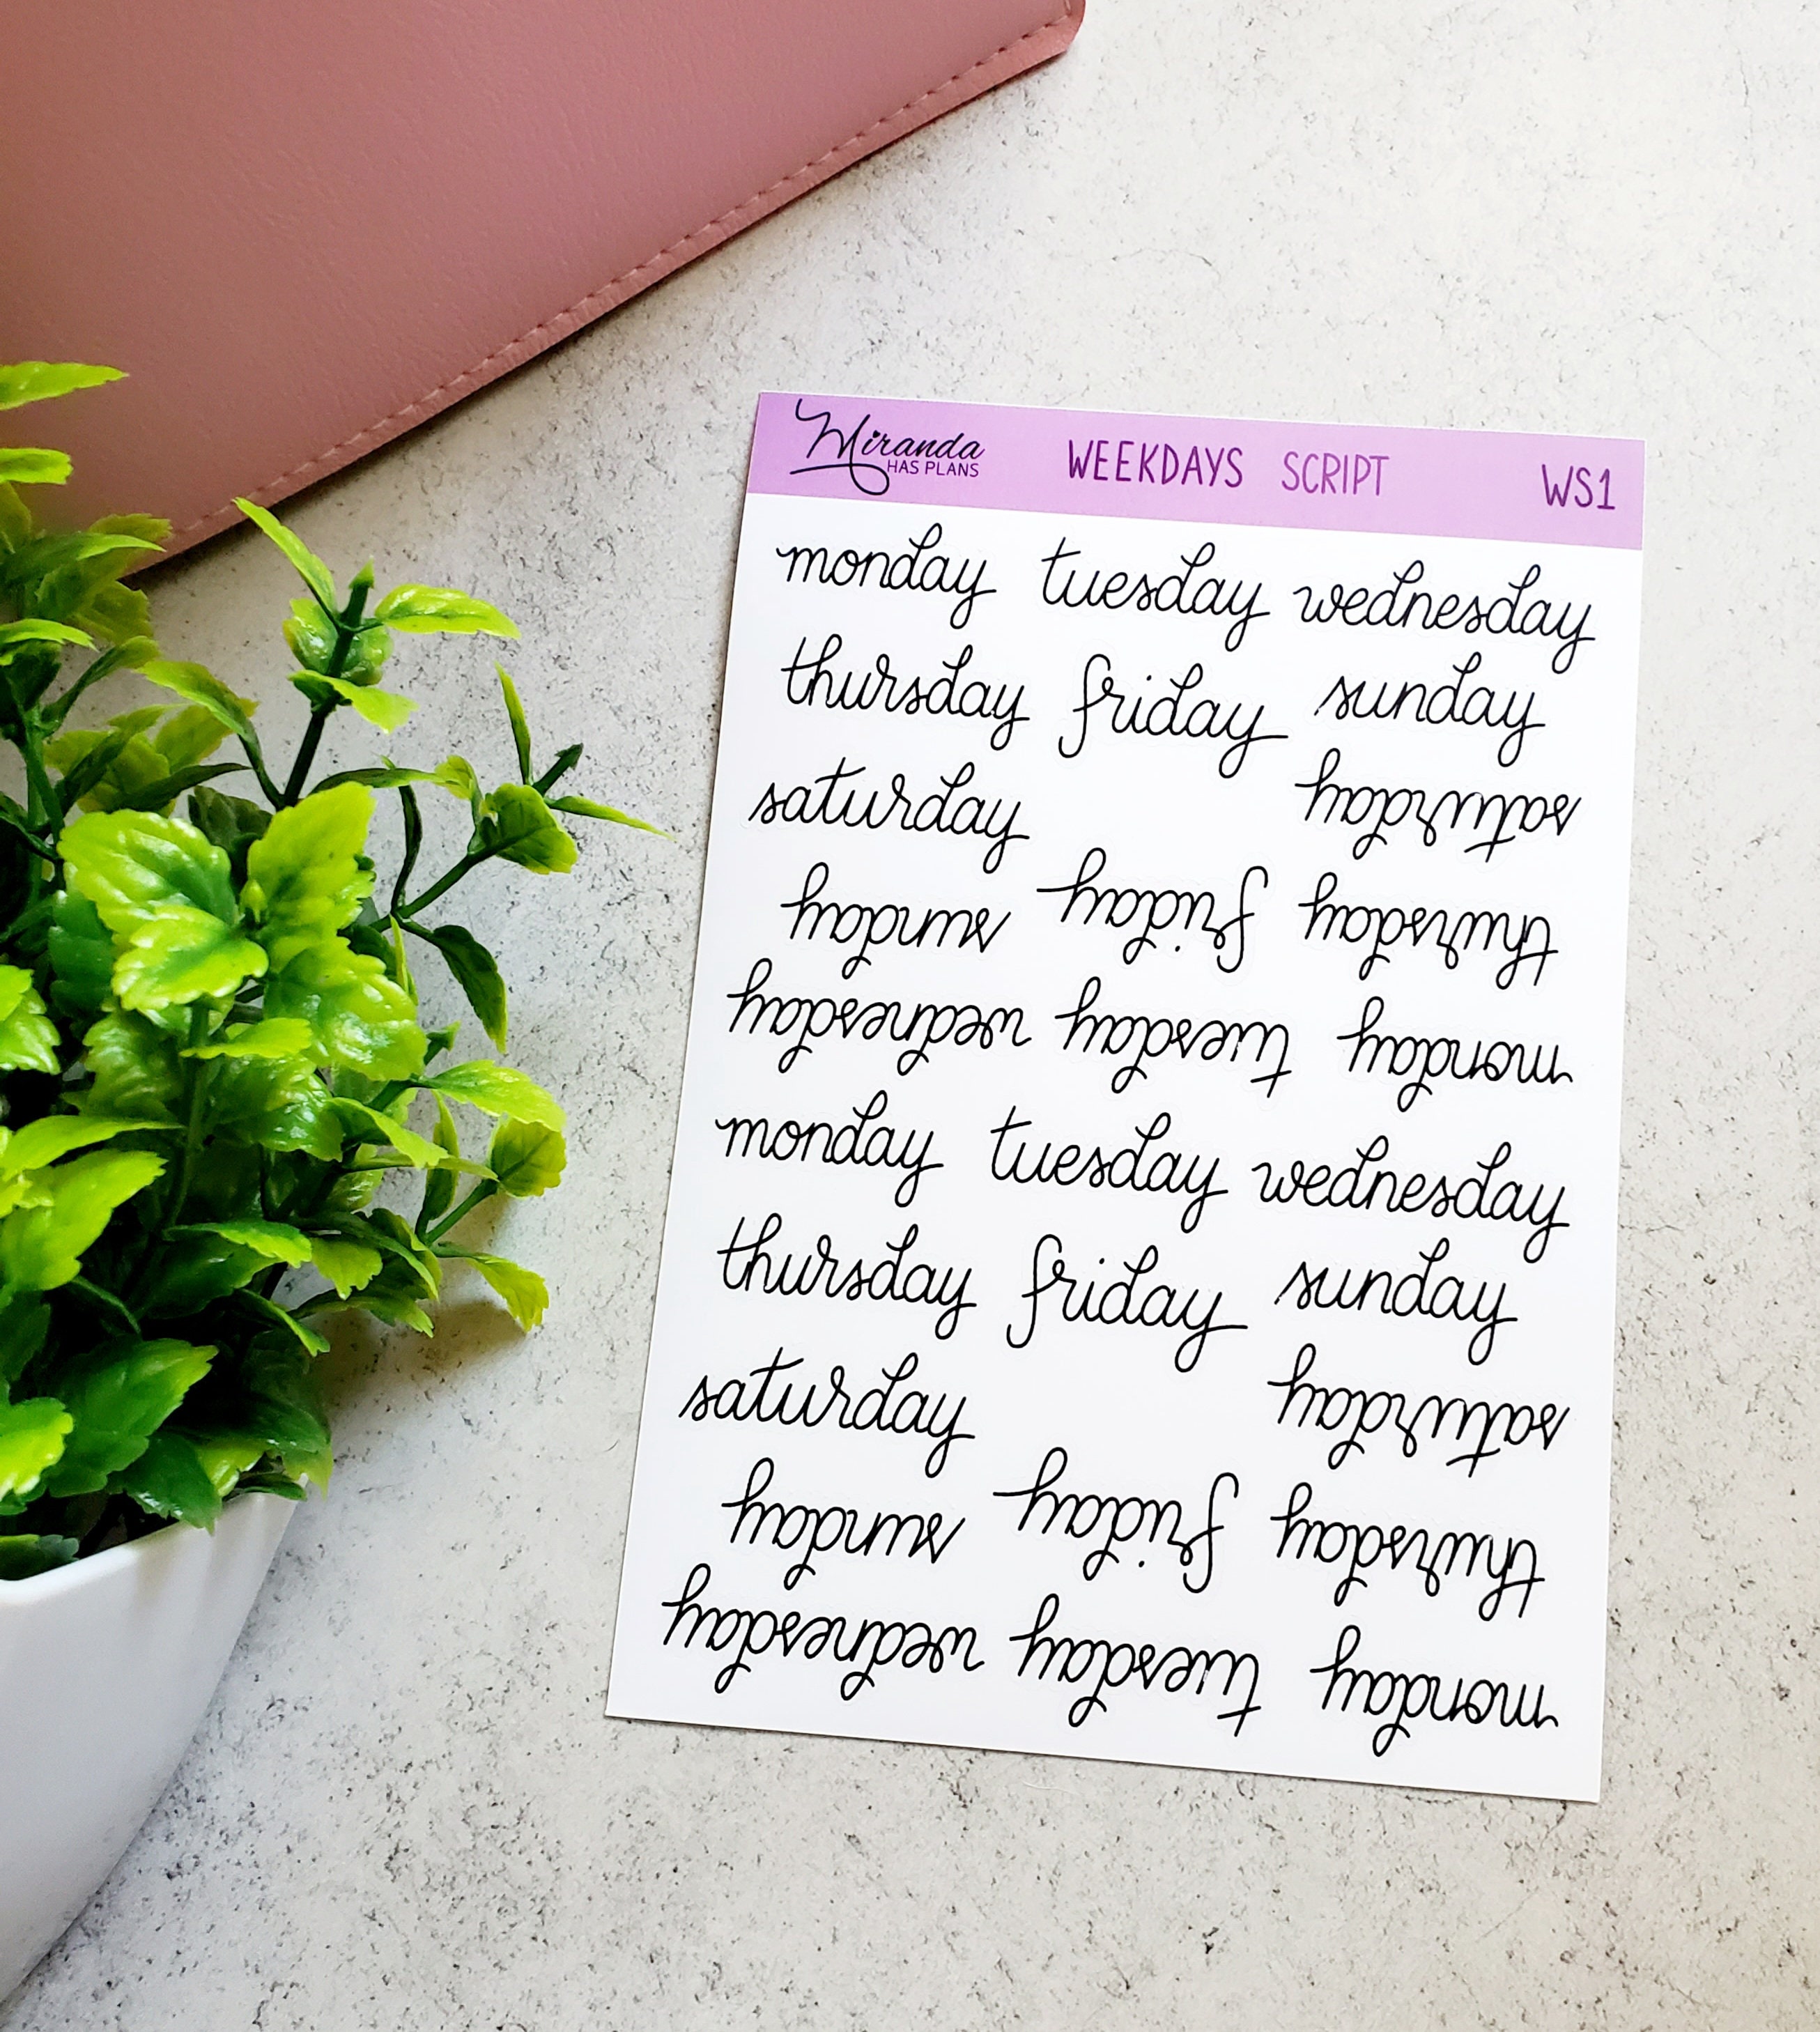 Miranda HAS PLANS WEEKDAYS SCRIPT WS1
monday tuesday wednesday
thursday friday sunday
saturday saturday
sunday friday thursday
wednesday tuesday monday
monday tuesday wednesday
thursday friday sunday
saturday saturday
sunday friday thursday
wednesday tuesday monday